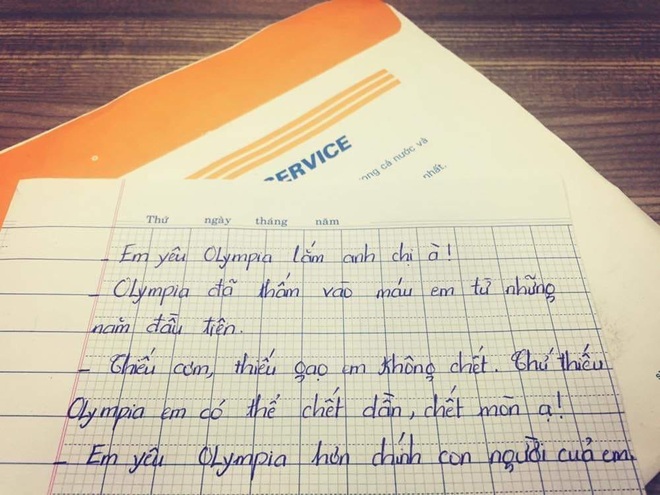 SERVICE
ong cả nước và
nhất.
Thứ ngày tháng năm
- Em yêu Olympia lắm anh chị à!
- Olympia đã thấm vào máu em từ những
năm đầu tiên.
- Thiếu cơm, thiếu gạo em không chết. Chứ thiếu
Olympia em có thể chết dần, chết mòn ạ!
- Em yêu Olympia hơn chính con người của em.